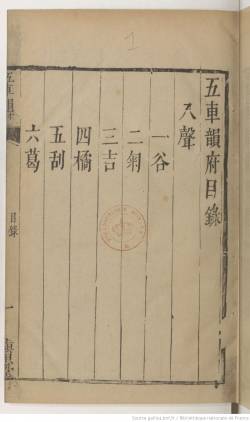 1
五車韻府目錄
入聲
一谷
二釗
三吉
四橘
五刮
六葛
五車韻府
目錄
一
Source gallica.bnf.fr / Bibliothèque nationale de France